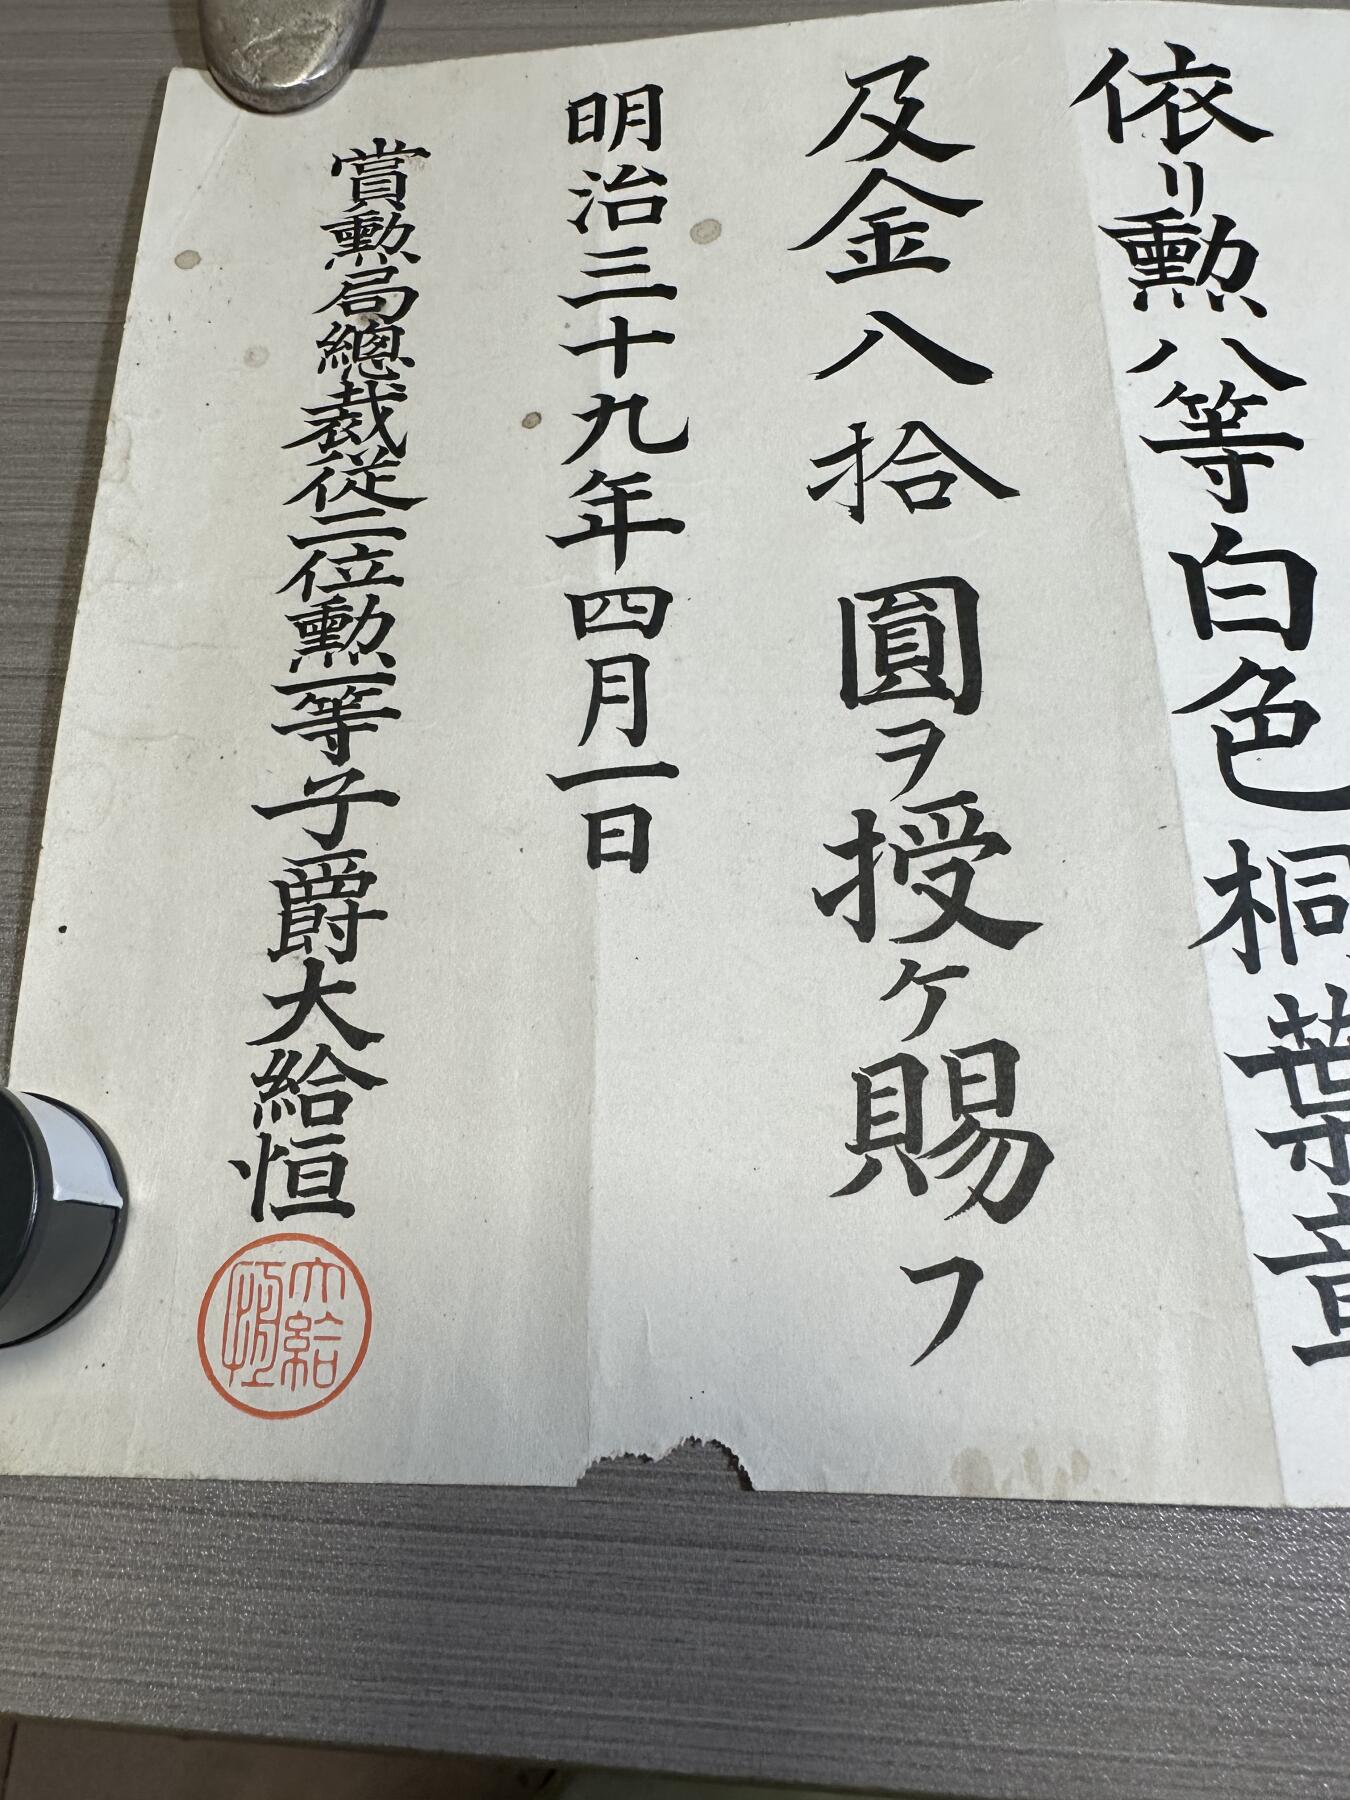 依リ勲八等白色桐葉章
及金八拾圓ヲ授ケ賜フ
明治三十九年四月一日
賞勲局總裁従二位勲一等子爵大給恒
大給